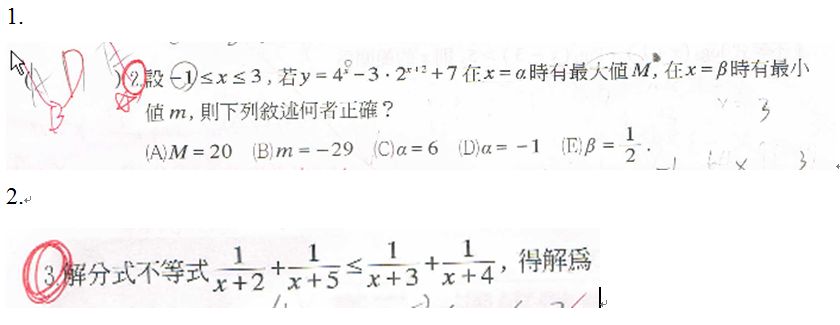 1.
)2.設 -1 ≤ x ≤ 3 , 若 y = 4ˣ - 3 · 2ˣ⁺² + 7 在 x = α 時有最大值 M , 在 x = β 時有最小
值 m , 則下列敘述何者正確？
(A) M = 20 (B) m = -29 (C) α = 6 (D) α = -1 (E) β = 1/2 .
2.
3.解分式不等式 1/(x+2) + 1/(x+5) ≤ 1/(x+3) + 1/(x+4) , 得解為